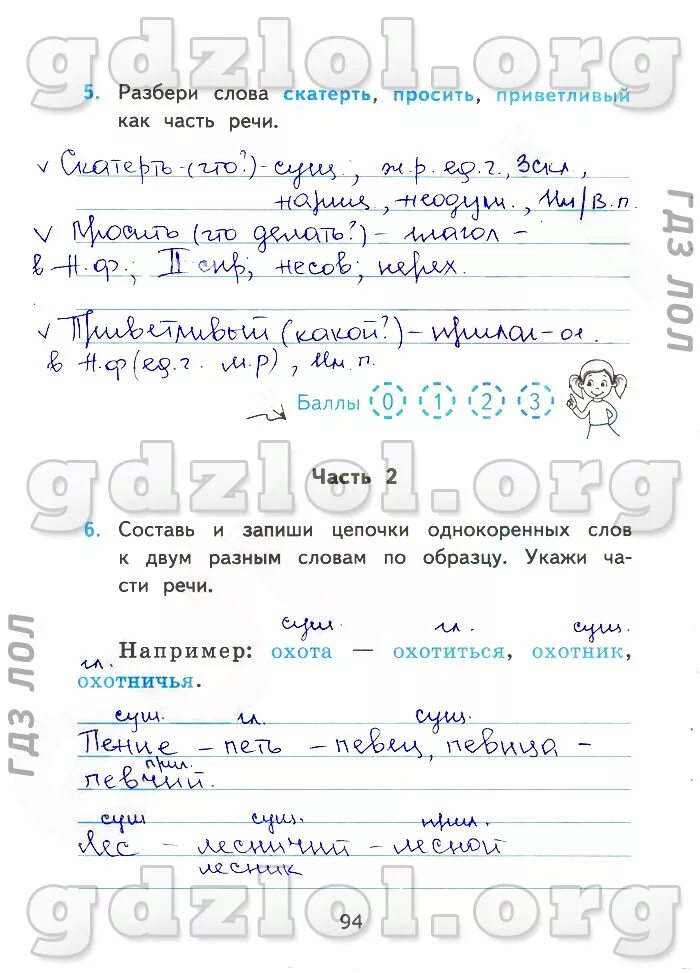 gdzlol.org
5. Разбери слова скатерть, просить, приветливый
как часть речи.
v Скатерть-(что?)-сущ, ж.р. ед.ч., 3 скл,
нариц, неодуш., Им/В.п.
v Просить (что делать?) - глагол -
в Н.ф.; II спр, несов, перех.
v Приветливый (какой?)-прилаг-ое.
в Н.ф (ед.ч. м.р), Им.п.
Баллы 0 1 2 3
ГДЗ ЛОЛ
gdzlol.org
Часть 2
6. Составь и запиши цепочки однокоренных слов
к двум разным словам по образцу. Укажи ча-
сти речи.
ГДЗ ЛОЛ
сущ. гл. сущ.
Например: охота — охотиться, охотник,
гл.
охотничья.
сущ. гл. сущ.
Пение - петь - певец, певица -
прил.
певчий.
сущ сущ. прил.
Лес - лесничий - лесной
лесник
gdzlol.org
94